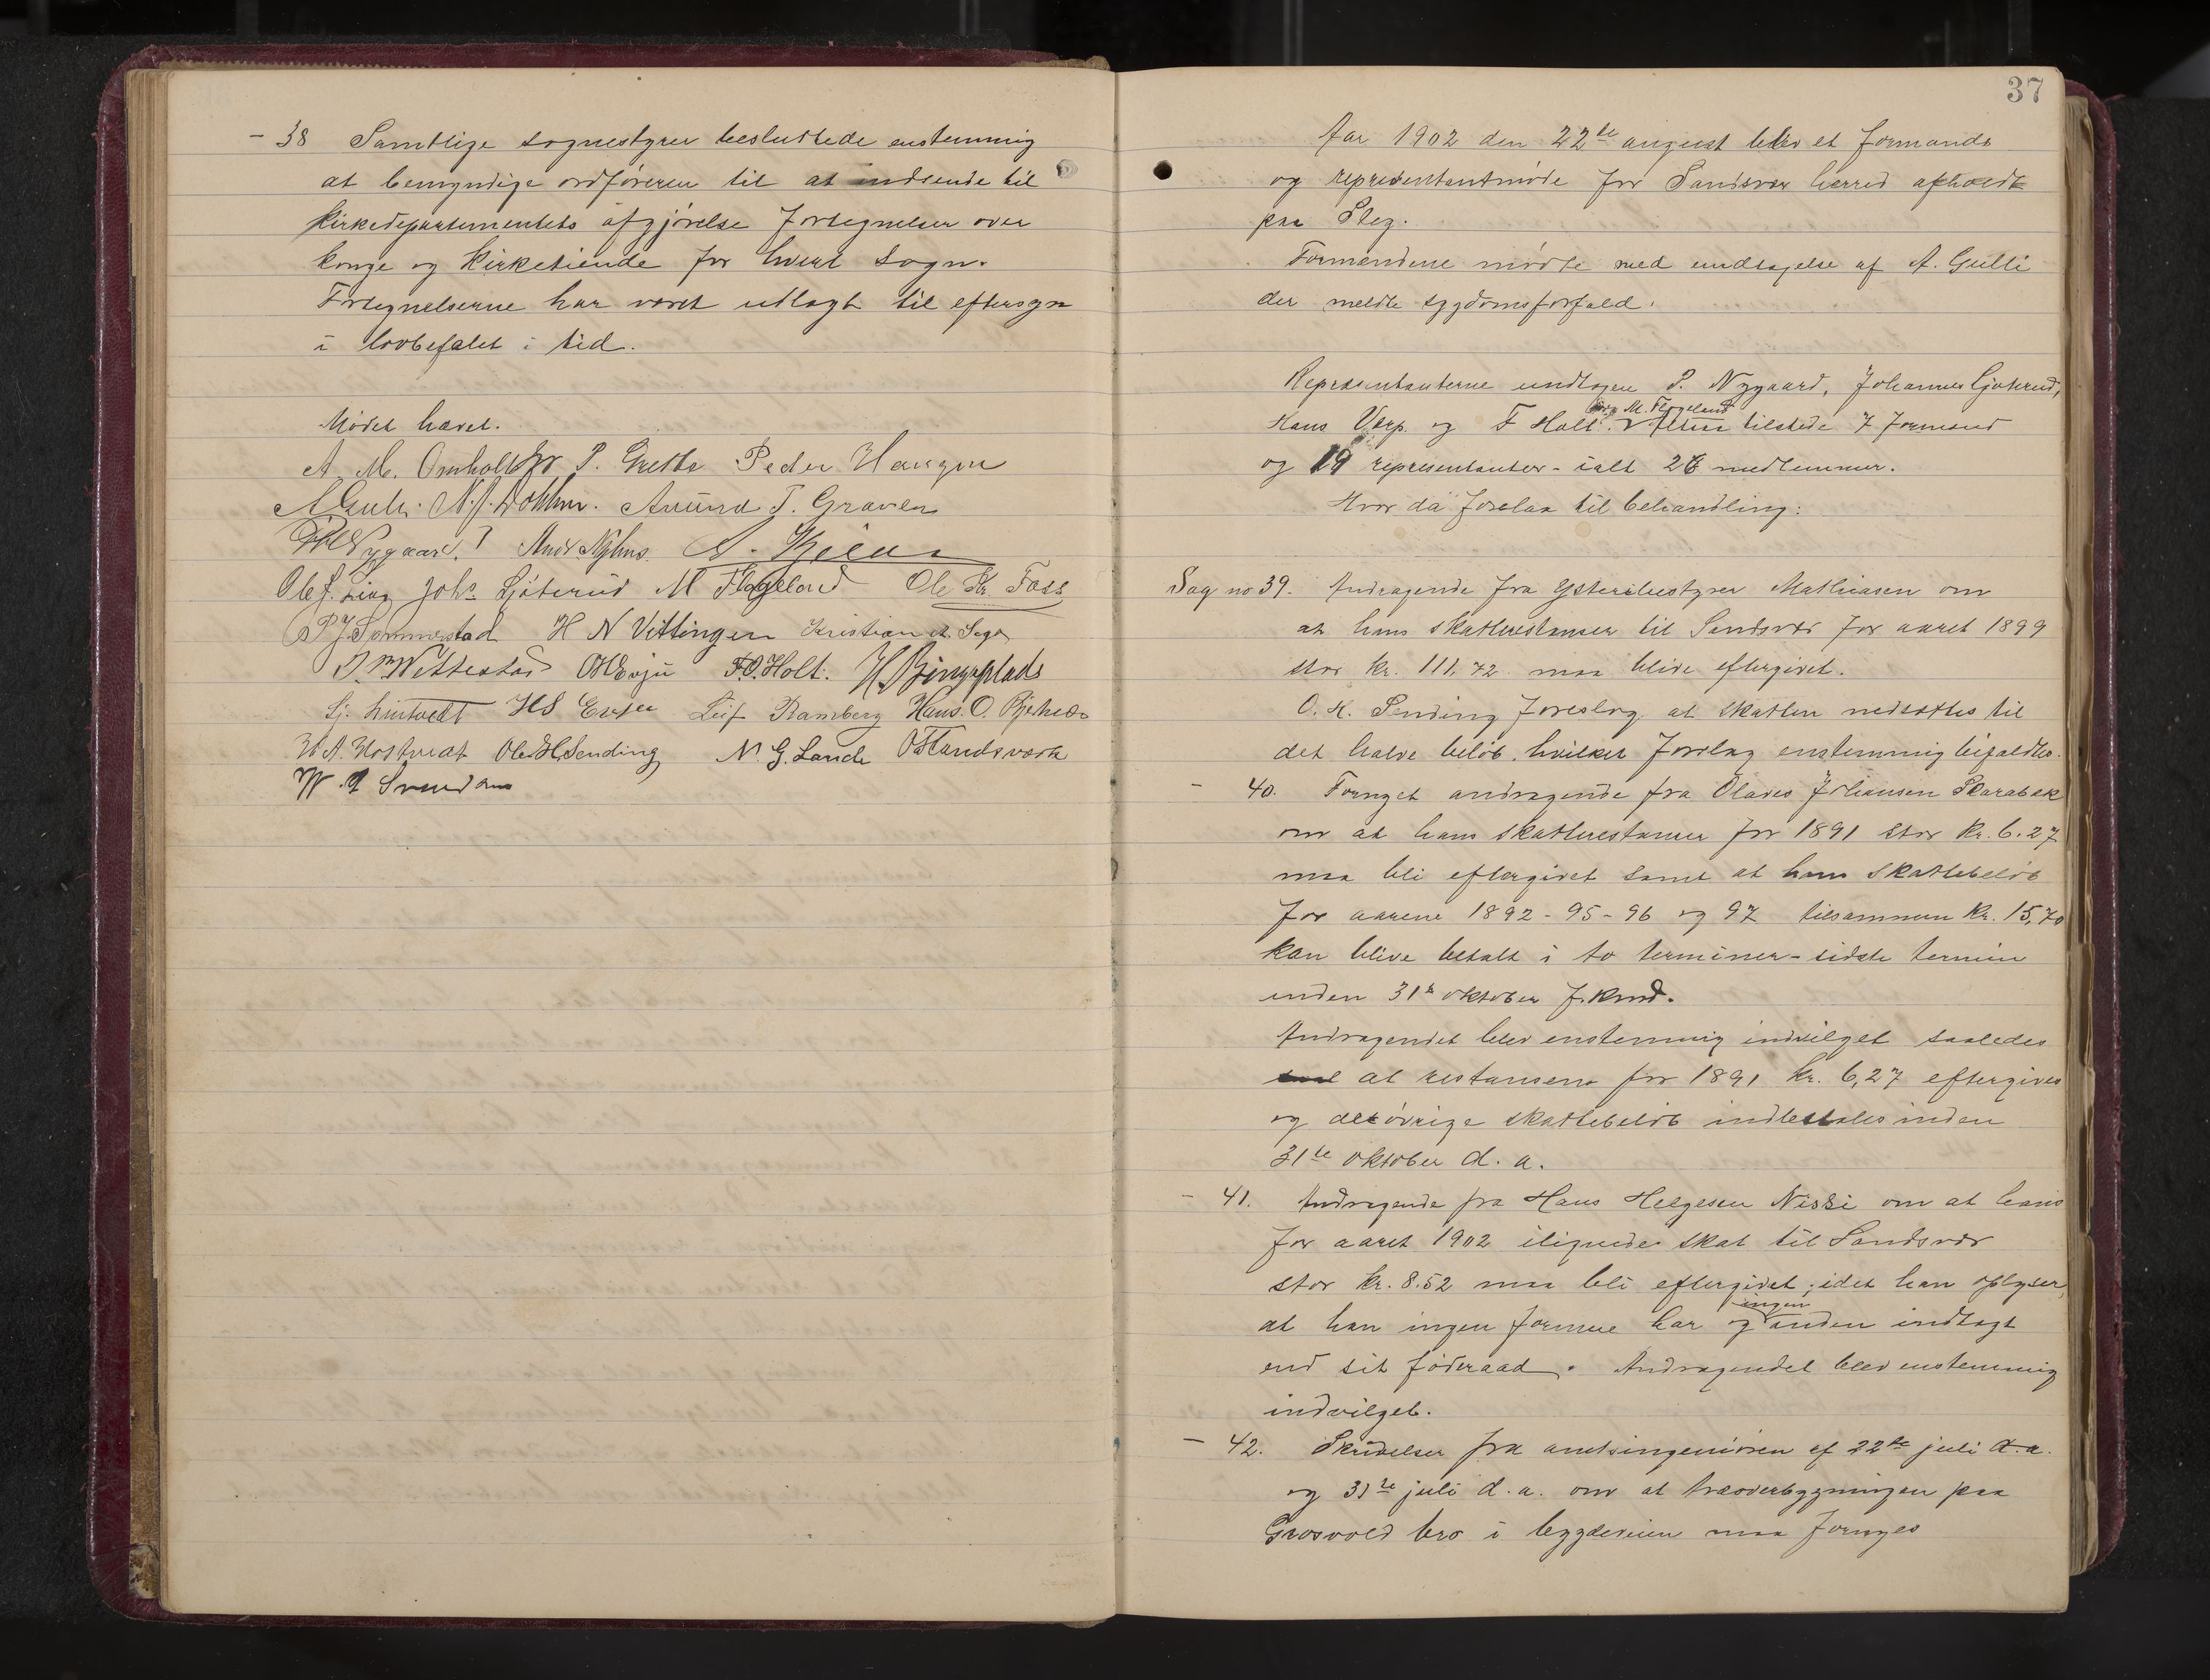 - 38 Samtlige sognestyrer besluttede enstemmig
at bemyndige ordføreren til at indsende til
kirkedepartementets afgjørelse fortegnelser over
konge og kirketiende for hvert sogn.
Fortegnelserne har været udlagt til eftersyn
i lovbefalet i tid.
Mødet hævet.
A. M. Omholt P. Grette Peder Haugen
N. J. Dokken. Amund T. Graven
Nygaard. And. Nyhus.
Ole J. Joh. Gjøterud M Flogeland Ole Kr. Foss
P J. Sommerstad H N Vittingen Kristian
J. Wettestad O H Evju F.O. Holt. H. Bingsplads
H S Leif Ramberg Hans. O.
H A. Ole H. Sending N. G. Lande O Landsværk
37
Aar 1902 den 22de august blev et formands
og representantmøde for Sandsvær herred afholdt
paa Steg.
Formændene mødte med undtagelse af A. Gulli
der meldte sygdomsforfald.
Representanterne undtagen P. Nygaard, Johannes Gjøterud,
og M. Flogeland
Hans Verp. og F Holt. tilstede 7 formænd
og 19 representanter - ialt 26 medlemmer.
Hvor da forelaa til behandling:
Sag no 39. Andragende fra ysteribestyrer Mathiasen om
at hans skatterestanser til Sandsvær for aaret 1899
stor kr. 111,72 maa blive eftergivet.
O. H. Sending foreslog at skatten nedsættes til
det halve beløb, hvilket forslag enstemmig bifaldtes.
- 40. Fornyet andragende fra Olaves Johansen Skarabæk
om at hans skatterestanser for 1891 stor kr. 6.27
maa bli eftergivet samt at hans skattebeløb
for aarene 1892 - 95 - 96 og 97 tilsammen kr. 15,70
kan blive betalt i to terminer - sidste termin
inden 31te oktober f. kmd.
Andragendet blev enstemmig indvilget saaledes
at restansen for 1891 kr. 6,27 eftergives
og det øvrige skattebeløb indbetales inden
31te oktober d. a.
- 41. Andragende fra Hans Helgesen Nissi om at hans
for aaret 1902 ilignede skat til Sandsvær
stor kr. 8.52 maa bli eftergivet, idet han oplyser,
ingen
at han ingen formue har og anden indtægt
end sit føderaad. Andragendet blev enstemmig
indvilget.
- 42. Skrivelser fra amtsingeniøren af 22de juli d.a.
og 31te juli d.a. om at træoverbygningen paa
Grosvold bro i bygdeveien maa fornyes